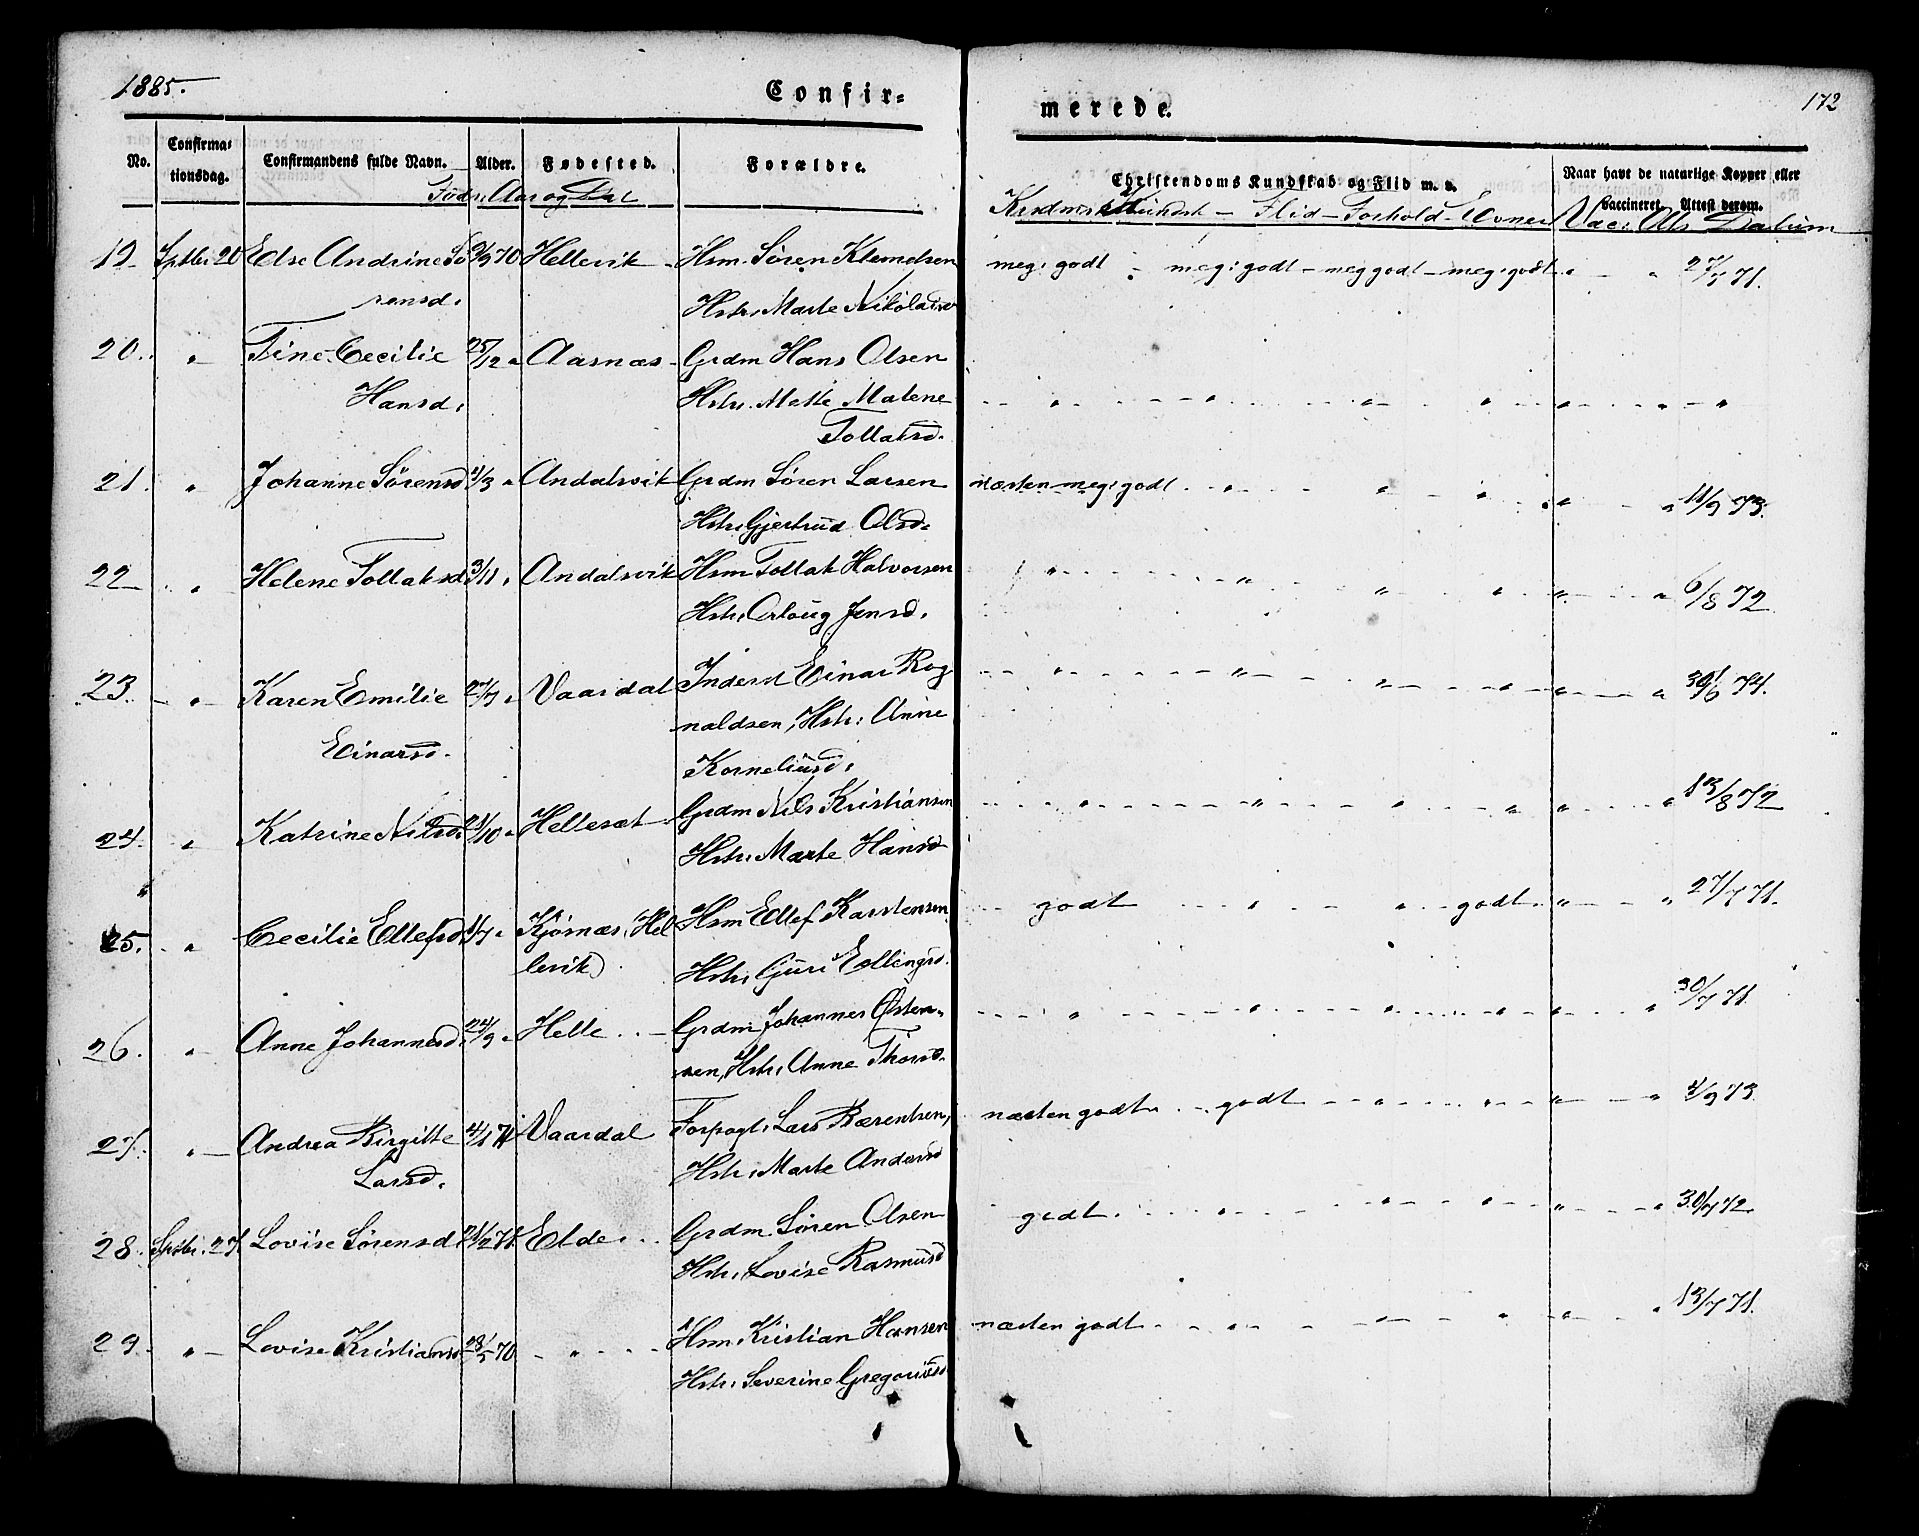 1885.
Confir-
merede.
172
No.
Confirma-
tionsdag.
Confirmandens fulde Navn.
Alder.
Fødested.
Forældre.
Christendoms Kundskab og Flid m. v.
Naar havt de naturlige Kopper eller
vaccineret. Attest derom.
Føds. Aar og Dat
Krsdms Kundsk - Flid - Forhold - Evner Vac. Att. Datum
19. Sptbr 20 Else Andrine Sø 9/9 70 Hellevik - Hsm. Søren Klemetsen meg: godt - meg: godt - meg godt - meg: godt " - " 27/7 71.
rensd. Hstr. Marte Nikolaisd
20. " Tine Cecilie 25/12 " Aasnæs - Grdm Hans Olsen
Hansd. Hstr. Mette Malene " " " " " " "
Tollaksd.
21. " Johanne Sørensd 4/3 " Andalsvik Grdm Søren Larsen næsten meg: godt " " " " " 11/9 73.
Hstr. Gjertrud Olsd.
22 " Helene Tollaksd 3/11 " Andalsvik Hsm Tollak Halvorsen " " " " " " 6/8 72
Hstr. Orloug Jensd.
23. " Karen Emilie 27/7 " Vaardal Inderst Einar Rog " " " " " " 74.
Einarsd. naldsen, Hstr: Anne
Korneliusd.
24. " Katrine Nilsd. 21/10 " Hellesæt Grdm Nils Kristiansen " " " " " " 13/8 72
Hstr. Marte Hansd
25. " Cecilie Ellefsd 1/7 " Kjørnæs (Hel Hsm Ellef Karstensen godt " " godt " " 27/7 71.
levik) Hstr. Guri Erlingsd.
26. " Anne Johannesd. 24/9 " Helle Grdm Johannes Østen- " " " " " " 30/7 71
sen, Hstr. Anne Thorsd.
27. " Andrea Birgitte 4/1 71 Vaardal Forpagt. Lars Bærentsen, næsten godt - godt " " " " 4/9 73
Larsd. Hstr. Marte Andersd
28. Sptbr. 27. Lovise Sørensd 21/2 71. Elde Grdm Søren Olsen godt. " " " " " 30/7 72.
Hstr. Lovise Rasmusd
29. " Lovise Kristiansd 28/5 70 " Hsm Kristian Hansen næsten godt " " " " " 13/7 71.
Hstr. Severine Gregoriusd